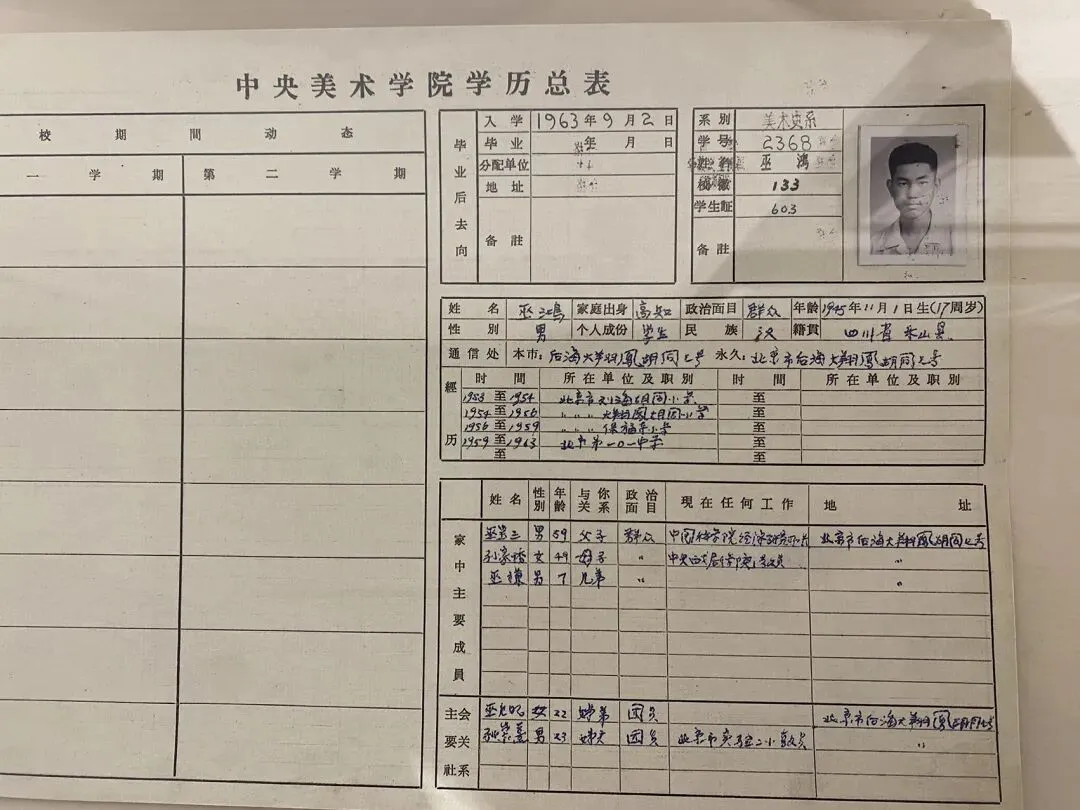 中央美术学院学历总表
校期間动态
一学期 第二学期
毕业后去向
入学 1963年9月2日
毕业 年 月 日
分配单位
地址
备註
系别 美术史系
学号 2368
姓名 巫鴻
校徽 133
学生証 603
备註
姓名 巫鴻 家庭出身 高知 政治面目 群众 年齡 1945年11月1日生(17周岁)
性别 男 个人成份 学生 民族 汉 籍貫 四川省巫山县
通信处 本市:后海大翔鳳胡同七号 永久:北京市后海大翔鳳胡同七号
經历
时間 所在单位及职别 时間 所在单位及职别
1953至1954 北京市 胡同小学 至
1954至1956 〃〃〃 大翔鳳胡同小学 至
1956至1959 〃〃〃 保福寺小学 至
1959至1963 北京第一〇一中学 至
至 至
家中主要成員
姓名 性别 年龄 与你关系 政治面目 現在任何工作 地址
巫宝三 男 59 父子 群众 中国科学院经济研究所 北京市后海大翔鳳胡同七号
孙家琇 女 49 母子 〃 中央戏剧学院教员 〃
巫謙 男 7 兄弟 〃 〃
主要社会关系
巫 女 22 姊弟 团员 北京市后海大翔鳳胡同七号
孙 男 23 姊夫 团员 北京市实验二小教员 〃